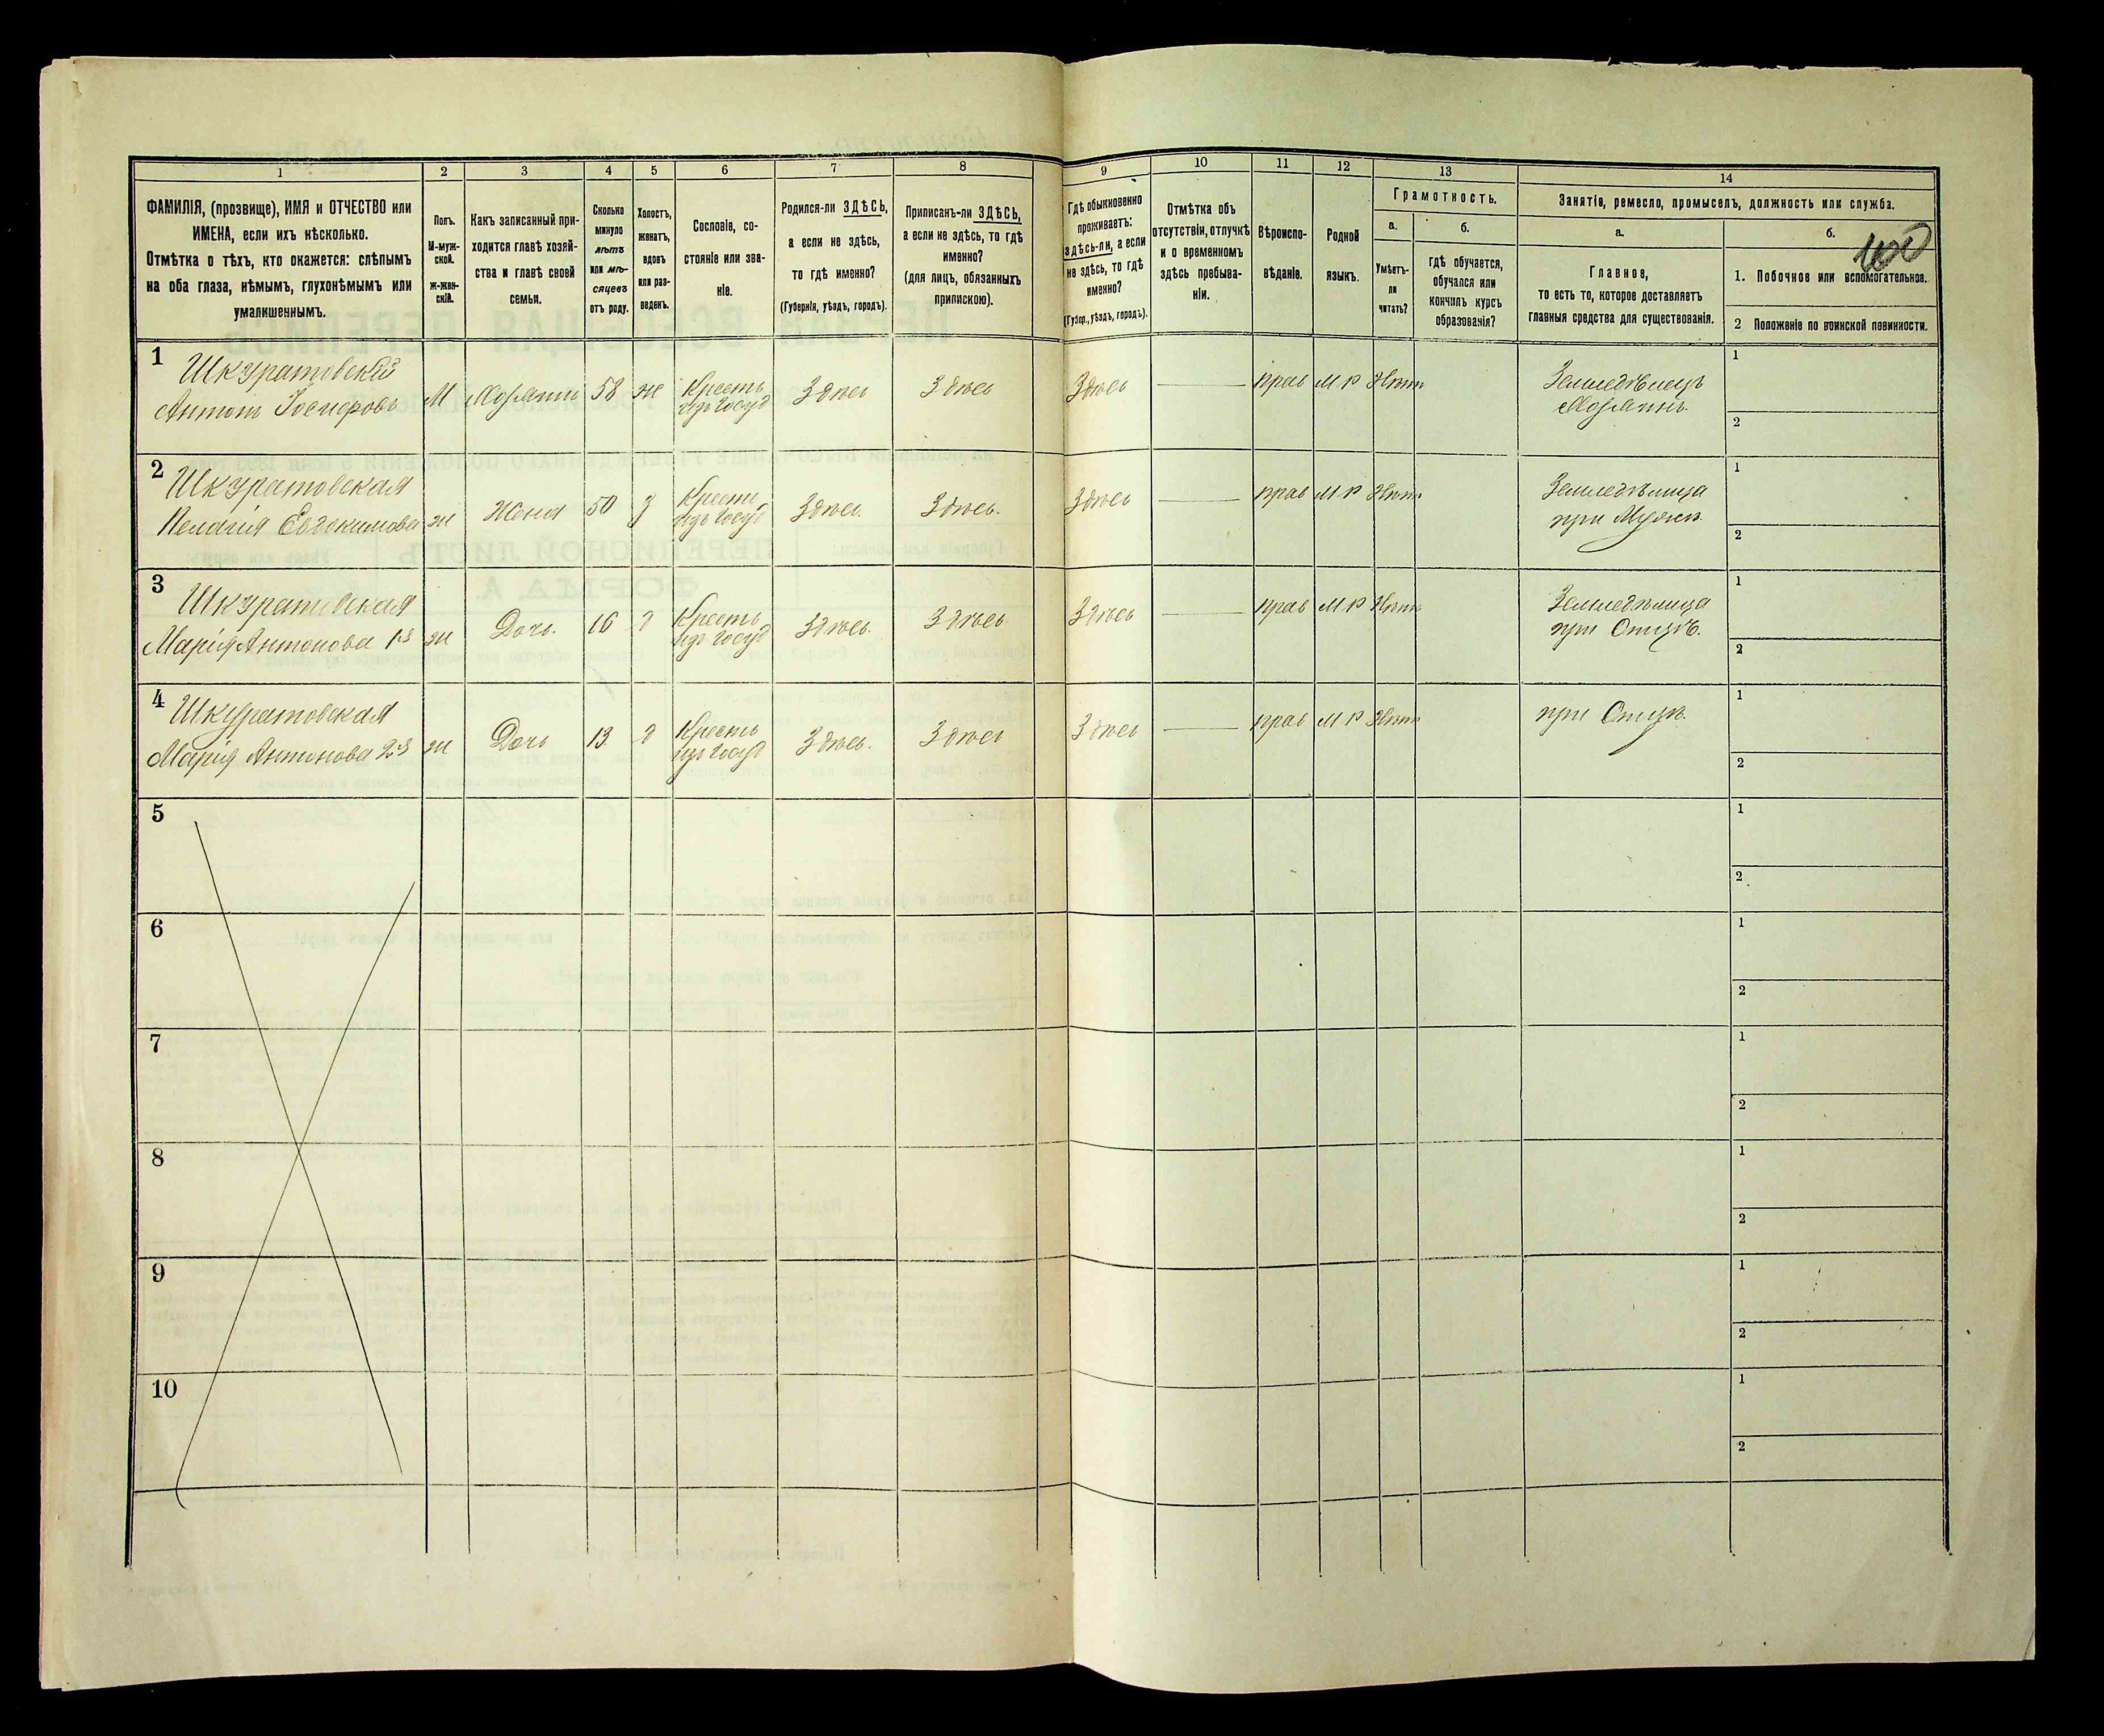 1
2
3
4
5
6
7
8
9
10
11
12
13
14
ФАМИЛІЯ, (прозвище), ИМЯ и ОТЧЕСТВО или
ИМЕНА, если ихъ нѣсколько.
Отмѣтка о тѣхъ, кто окажется: слѣпымъ
на оба глаза, нѣмымъ, глухонѣмымъ или
умалишеннымъ.
Полъ.
М-муж-
ской.
ж-жен-
скій.
Какъ записанный при-
ходится главѣ хозяй-
ства и главѣ своей
семьи.
Сколько
минуло
лѣтъ
или мѣ-
сяцевъ
отъ роду.
Холостъ,
женатъ,
вдовъ
или раз-
веденъ.
Сословіе, со-
стояніе или зва-
ніе.
Родился-ли ЗДѢСЬ,
а если не здѣсь,
то гдѣ именно?
(Губернія, уѣздъ, городъ).
Приписанъ-ли ЗДѢСЬ,
а если не здѣсь, то гдѣ
именно?
(для лицъ, обязанныхъ
припискою).
Гдѣ обыкновенно
проживаетъ:
здѣсь-ли, а если
не здѣсь, то гдѣ
именно?
(Губер., уѣздъ, городъ).
Отмѣтка объ
отсутствіи, отлучкѣ
и о временномъ
здѣсь пребыва-
ніи.
Вѣроиспо-
вѣданіе.
Родной
языкъ.
Грамотность.
а.
б.
Умѣетъ-
ли
читать?
гдѣ обучается,
обучался или
кончилъ курсъ
образованія?
Занятіе, ремесло, промыселъ, должность или служба.
а.
б.
Главное,
то есть то, которое доставляетъ
главныя средства для существованія.
100
1. Побочное или вспомогательное.
2 Положеніе по воинской повинности.
1
Шкуратовскій
Антонъ Іосифовъ
М
Хозяинъ
58
ж
Кресть
изъ Госуд
Здѣсь
Здѣсь
Здѣсь
прав
М Р
Нѣтъ
Земледѣлецъ
Хозяинъ.
1
2
2
Шкуратовская
Пелагія Евдокимова
ж
Жена
50
з
Кресть
изъ Госуд
Здѣсь
Здѣсь.
Здѣсь
прав
М Р
Нѣтъ
Земледѣлица
при Мужѣ
1
2
3
Шкуратовская
Марія Антонова 1я
ж
Дочь.
16
д
Кресть
изъ Госуд
Здѣсь.
Здѣсь
Здѣсь
прав
М Р
Нѣтъ
Земледѣлица
при Отцѣ.
1
2
4
Шкуратовская
Марія Антонова 2я
ж
Дочь
13
д
Кресть
изъ Госуд
Здѣсь.
Здѣсь
Здѣсь
прав
М Р
Нѣтъ
при Отцѣ.
1
2
5
1
2
6
1
2
7
1
2
8
1
2
9
1
2
10
1
2